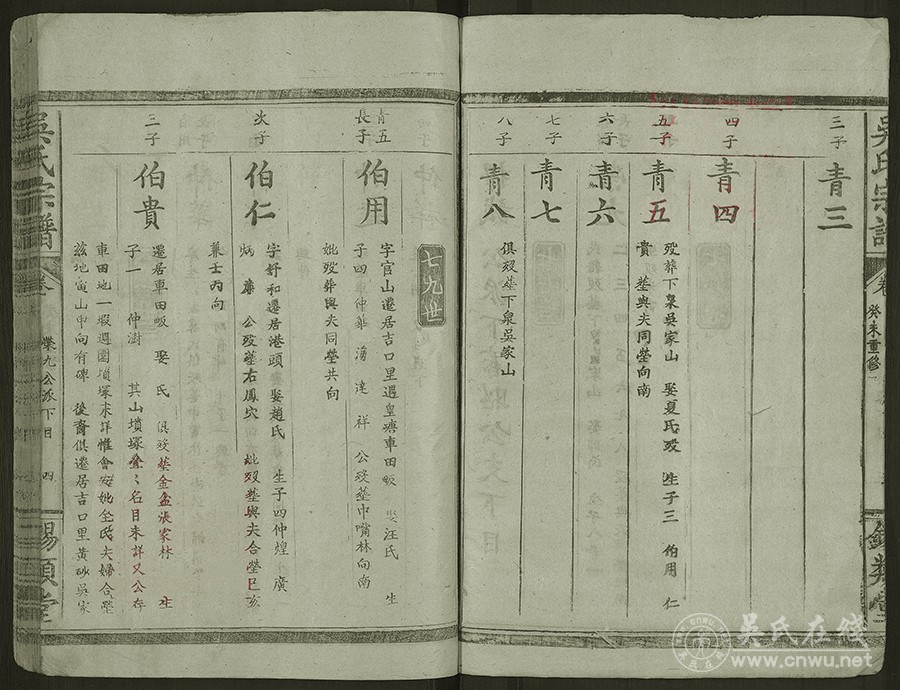 三子
青三
四子
青四
五子
青五
歿葬下泉吴家山 娶夏氏歿 生子三 伯用 仁
貴 塟與夫同塋向南
六子
青六
七子
青七
八子
青八
俱歿塟下泉吴家山
七九世
青五
長子
伯用
字官山遷居吉口里遇皇塘車田畈 娶汪氏 生
子四 仲華 達 祥 公歿塟中嘴林向南
妣歿葬與夫同塋共向
次子
伯仁
字舒和遷居港頭 娶趙氏 生子四仲煌 廣
炳 公歿塟右鳳穴 妣歿塟與夫合塋巳亥
兼壬丙向
三子
伯貴
遷居車田畈 娶 氏 俱歿塟金盆張家林 生
子一 仲澍 其山墳塚叠叠名目未詳又公存
車田地一塅週圍墳塚未詳惟會安妣全氏夫婦合塋
兹地寅山申向有碑 後裔俱遷居吉口里黄砂吴家
吴氏宗譜
卷
榮九公派下目 四
錫類堂
吴氏宗譜
卷
癸未重修
錫類堂
吴氏在线
www.cnwu.net